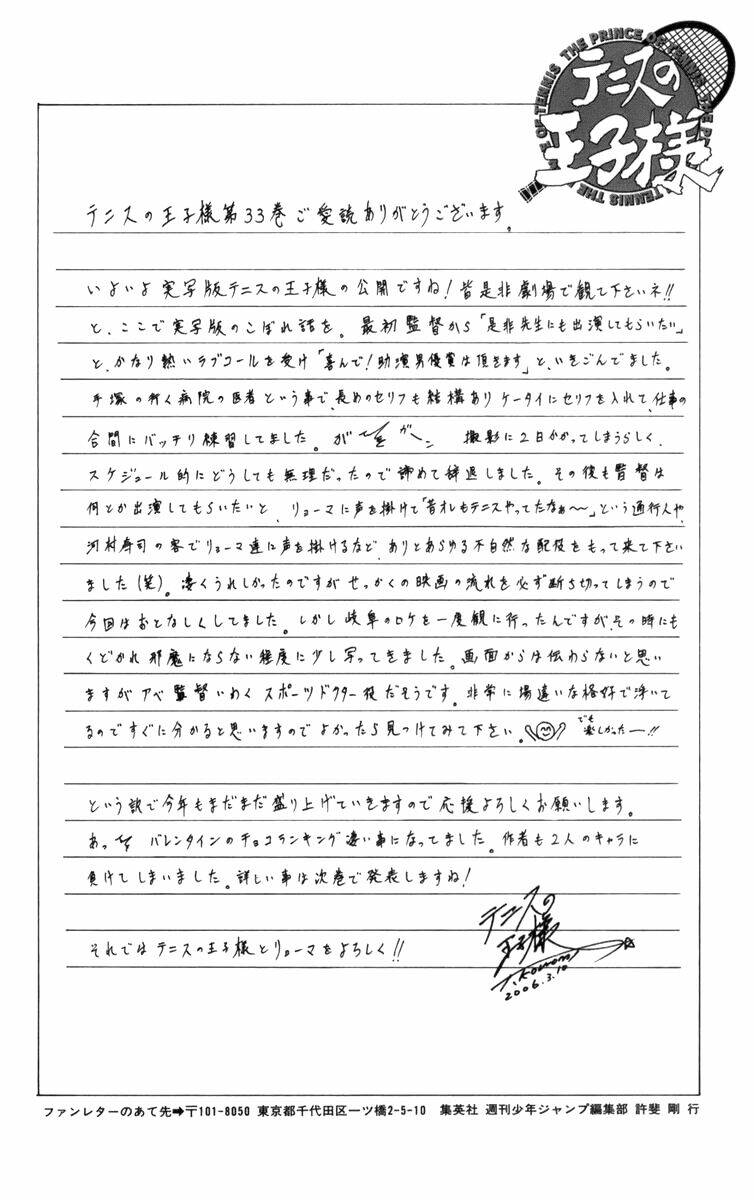 THE PRINCE OF TENNIS
テニスの
王子様
テニスの王子様第33巻ご愛読ありがとうございます。
いよいよ実写版テニスの王子様の公開ですね!皆是非劇場で観て下さいネ!!
と、ここで実写版のこぼれ話を。最初監督から「是非先生にも出演してもらいたい」
と、かなり熱いラブコールを受け「喜んで!助演男優賞は頂きます」と、いきごんでました。
手塚の行く病院の医者という事で、長めのセリフも結構あり ケータイにセリフを入れて、仕事の
合間にバッチリ練習してました。が て を ガーン 撮影に2日かかってしまうらしく、
スケジュール的にどうしても無理だったので諦めて辞退しました。その後も監督は
何とか出演してもらいたいと、リョーマに声を掛けて「昔オレもテニスやってたなぁ〜」という通行人や、
河村寿司の客でリョーマ達に声を掛けるなど、ありとあらゆる不自然な配役をもって来て下さい
ました(笑)。凄くうれしかったのですが せっかくの映画の流れを必ず断ち切ってしまうので
今回はおとなしくしてました。しかし岐阜のロケを一度観に行ったんですが、その時にも
くどかれ邪魔にならない程度に少し写ってきました。画面からは伝わらないと思い
ますがアベ監督いわく スポーツドクター役だそうです。非常に場違いな格好で浮いて
るのですぐに分かると思いますのでよかったら見つけてみて下さい。でも楽しかったー!!
という訳で今年もまだまだ盛り上げていきますので応援よろしくお願いします。
あっ バレンタインのチョコランキング凄い事になってました。作者も2人のキャラに
負けてしまいました。詳しい事は次巻で発表しますね!
それではテニスの王子様とリョーマをよろしく!!
テニスの
王子様
T.Konomi
2006.3.10
ファンレターのあて先➡〒101-8050 東京都千代田区一ツ橋2-5-10 集英社 週刊少年ジャンプ編集部 許斐 剛 行